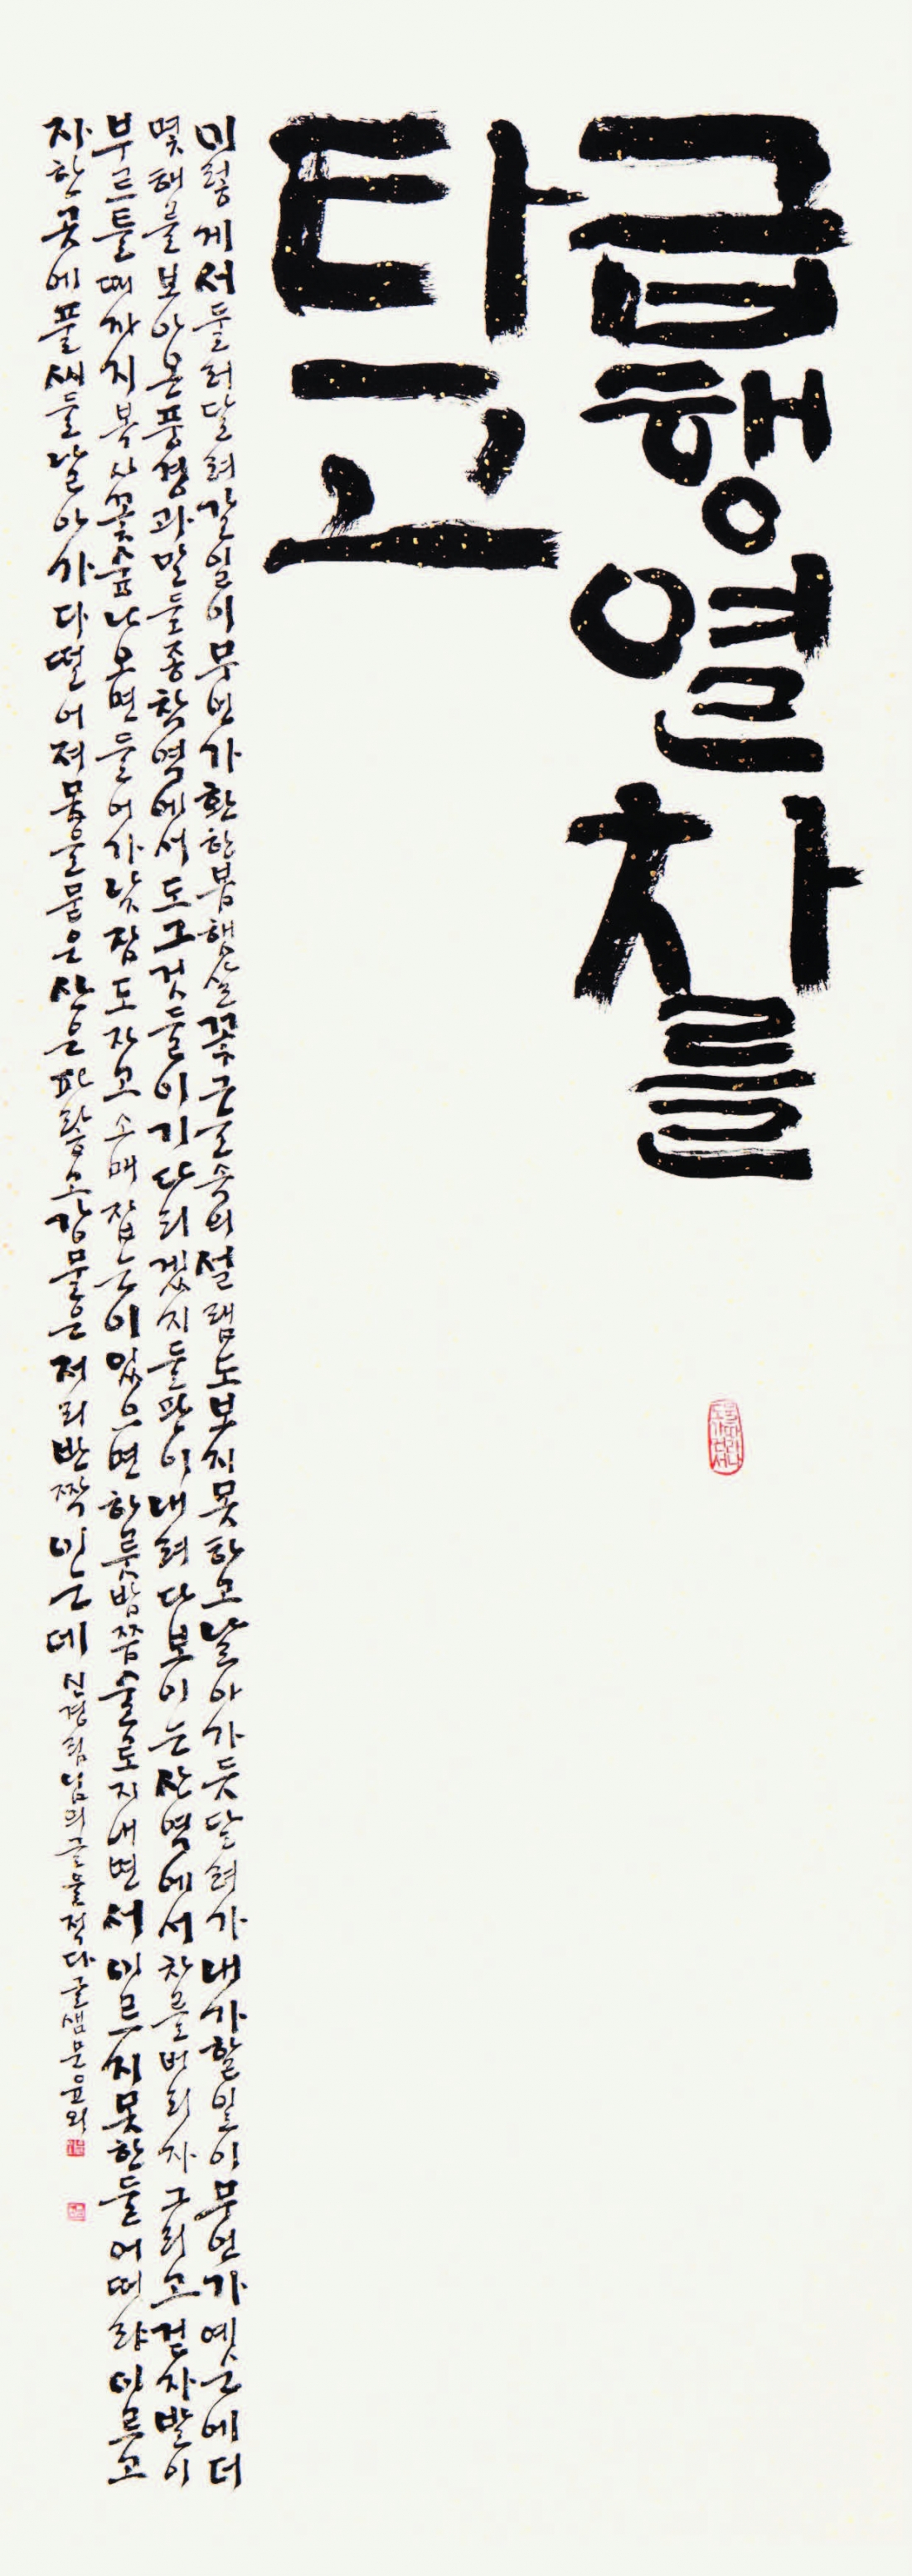 급행열차를
타고
이렇게서둘러달려갈일이무언가환한봄햇살꽃그늘속의설램도보지못하고날아가듯달려가내가할일이무언가예순에더
몇해를보아온풍경과말들종착역에서도그것들이기다리겠지들판이내려다보이는산역에서차를버리자그리고걷자발이
부르틀때까지복사꽃숲나오면들어가낮잠도자고소매잡는이있으면하룻밤쯤술로지내면서이르지못한들어떠랴이르고
자한곳에풀씨들날아가다떨어져몸을묻은산은파랗고강물은저리반짝이는데 신경림님의글을적다글샘